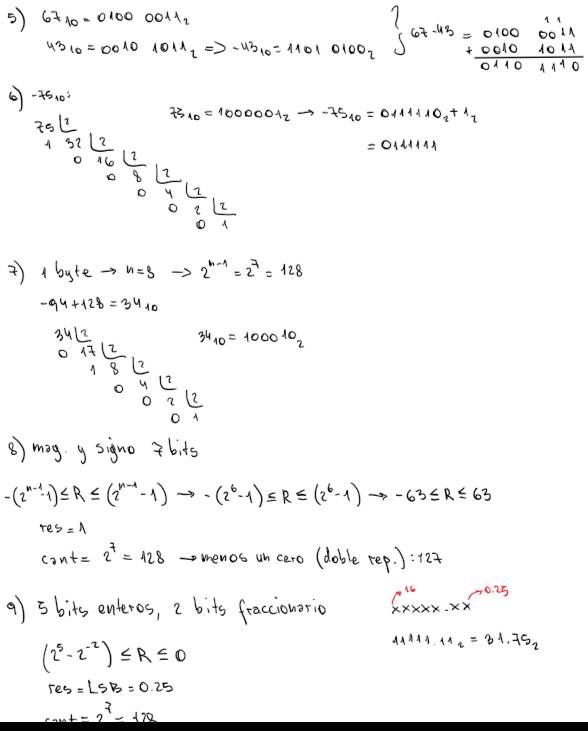 5) 67₁₀ = 0100 0011₂
43₁₀ = 0010 1011₂ => -43₁₀ = 1101 0100₂
67-43 = 0100 0011
+ 0010 1011
0110 1110
6) -75₁₀:
75 |2
1 32 |2
0 16 |2
0 8 |2
0 4 |2
0 2 |2
0 1
73₁₀ = 1000001₂ → -75₁₀ = 0111110₂ + 1₂
= 0111111
7) 1 byte → n=8 → 2ⁿ⁻¹ = 2⁷ = 128
-94+128 = 34₁₀
34 |2
0 17 |2
1 8 |2
0 4 |2
0 2 |2
0 1
34₁₀ = 100010₂
8) mag. y signo 7 bits
-(2ⁿ⁻¹-1) ≤ R ≤ (2ⁿ⁻¹-1) → -(2⁶-1) ≤ R ≤ (2⁶-1) → -63 ≤ R ≤ 63
res = 1
cant = 2⁷ = 128 → menos un cero (doble rep.): 127
9) 5 bits enteros, 2 bits fraccionario
16 0.25
xxxxx.xx
11111.11₂ = 31.75₂
(2⁵-2⁻²) ≤ R ≤ 0
res = LSB = 0.25
cant = 2⁷ = 128